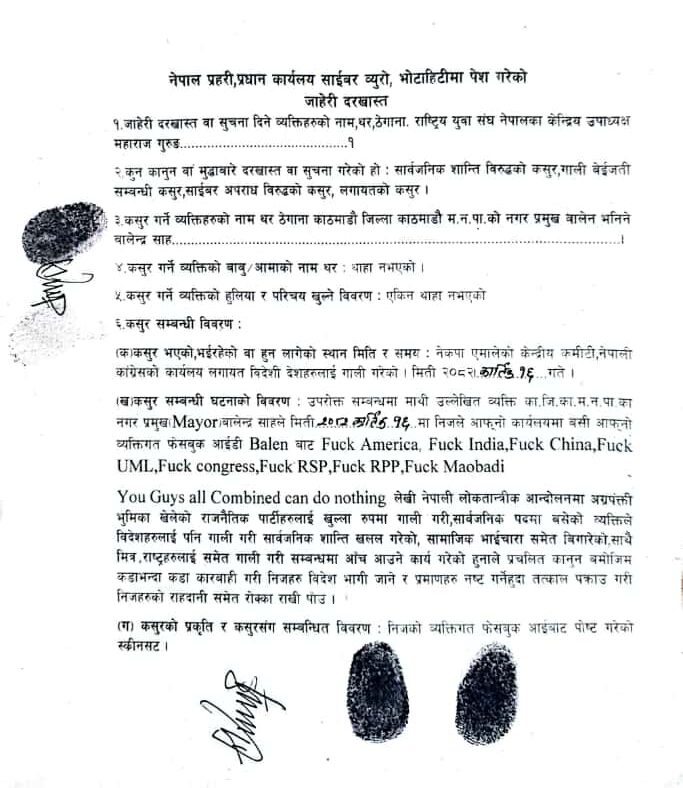 नेपाल प्रहरी,प्रधान कार्यलय साईबर व्युरो, भोटाहिटीमा पेश गरेको
जाहेरी दरखास्त
१.जाहेरी दरखास्त वा सुचना दिने व्यक्तिहरुको नाम,थर,ठेगाना. राष्ट्रिय युवा संघ नेपालका केन्द्रिय उपाध्यक्ष
महाराज गुरुङ.......................................१
२.कुन कानुन वा मुद्दाबारे दरखास्त वा सुचना गरेको हो : सार्वजनिक शान्ति विरुद्धको कसुर,गाली बेईजती
सम्बन्धी कसुर,साईबर अपराध विरुद्धको कसुर, लगायतको कसुर ।
३.कसुर गर्ने व्यक्तिहरुको नाम थर ठेगाना काठमाडौं जिल्ला काठमाडौं म.न.पा.को नगर प्रमुख बालेन भनिने
बालेन्द्र साह..............................................................................।
४.कसुर गर्ने व्यक्तिको बाबु/आमाको नाम थर : थाहा नभएको ।
५.कसुर गर्ने व्यक्तिको हुलिया र परिचय खुल्ने विवरण : एकिन थाहा नभएको
६.कसुर सम्बन्धी विवरण :
(क)कसुर भएको,भईरहेको वा हुन लागेको स्थान मिति र समय : नेकपा एमालेको केन्द्रीय कमीटी,नेपाली
कांग्रेसको कार्यलय लगायत विदेशी देशहरुलाई गाली गरेको । मिती २०८२।कार्तिक १६...गते ।
(ख)कसुर सम्बन्धी घटनाको विवरण : उपरोक्त सम्बन्धमा माथी उल्लेखित व्यक्ति का.जि.का.म.न.पा.का
नगर प्रमुख(Mayor)बालेन्द्र साहले मिती २०८२ कार्तिक १६..मा निजले आफ्नो कार्यलयमा बसी आफ्नो
व्यक्तिगत फेसबुक आईडी Balen बाट Fuck America, Fuck India,Fuck China,Fuck
UML,Fuck congress,Fuck RSP,Fuck RPP,Fuck Maobadi
You Guys all Combined can do nothing लेखी नेपाली लोकतान्त्रीक आन्दोलनमा अग्रपंक्ती
भुमिका खेलेको राजनैतिक पार्टीहरुलाई खुल्ला रुपमा गाली गरी,सार्वजनिक पदमा बसेको व्यक्तिले
विदेशहरुलाई पनि गाली गरी सार्वजनिक शान्ति खलल गरेको, सामाजिक भाईचारा समेत बिगारेको,साथै
मित्र,राष्ट्रहरुलाई समेत गाली गरी सम्बन्धमा आँच आउने कार्य गरेको हुनाले प्रचलित कानुन बमोजिम
कडाभन्दा कडा कारबाही गरी निजहरु विदेश भागी जाने र प्रमाणहरु नष्ट गर्नेहुदा तत्काल पक्राउ गरी
निजहरुको राहदानी समेत रोक्का राखी पाँउ ।
(ग) कसुरको प्रकृति र कसुरसंग सम्बन्धित विवरण : निजको व्यक्तिगत फेसबुक आईबाट पोष्ट गरेको
स्क्रीनसट ।